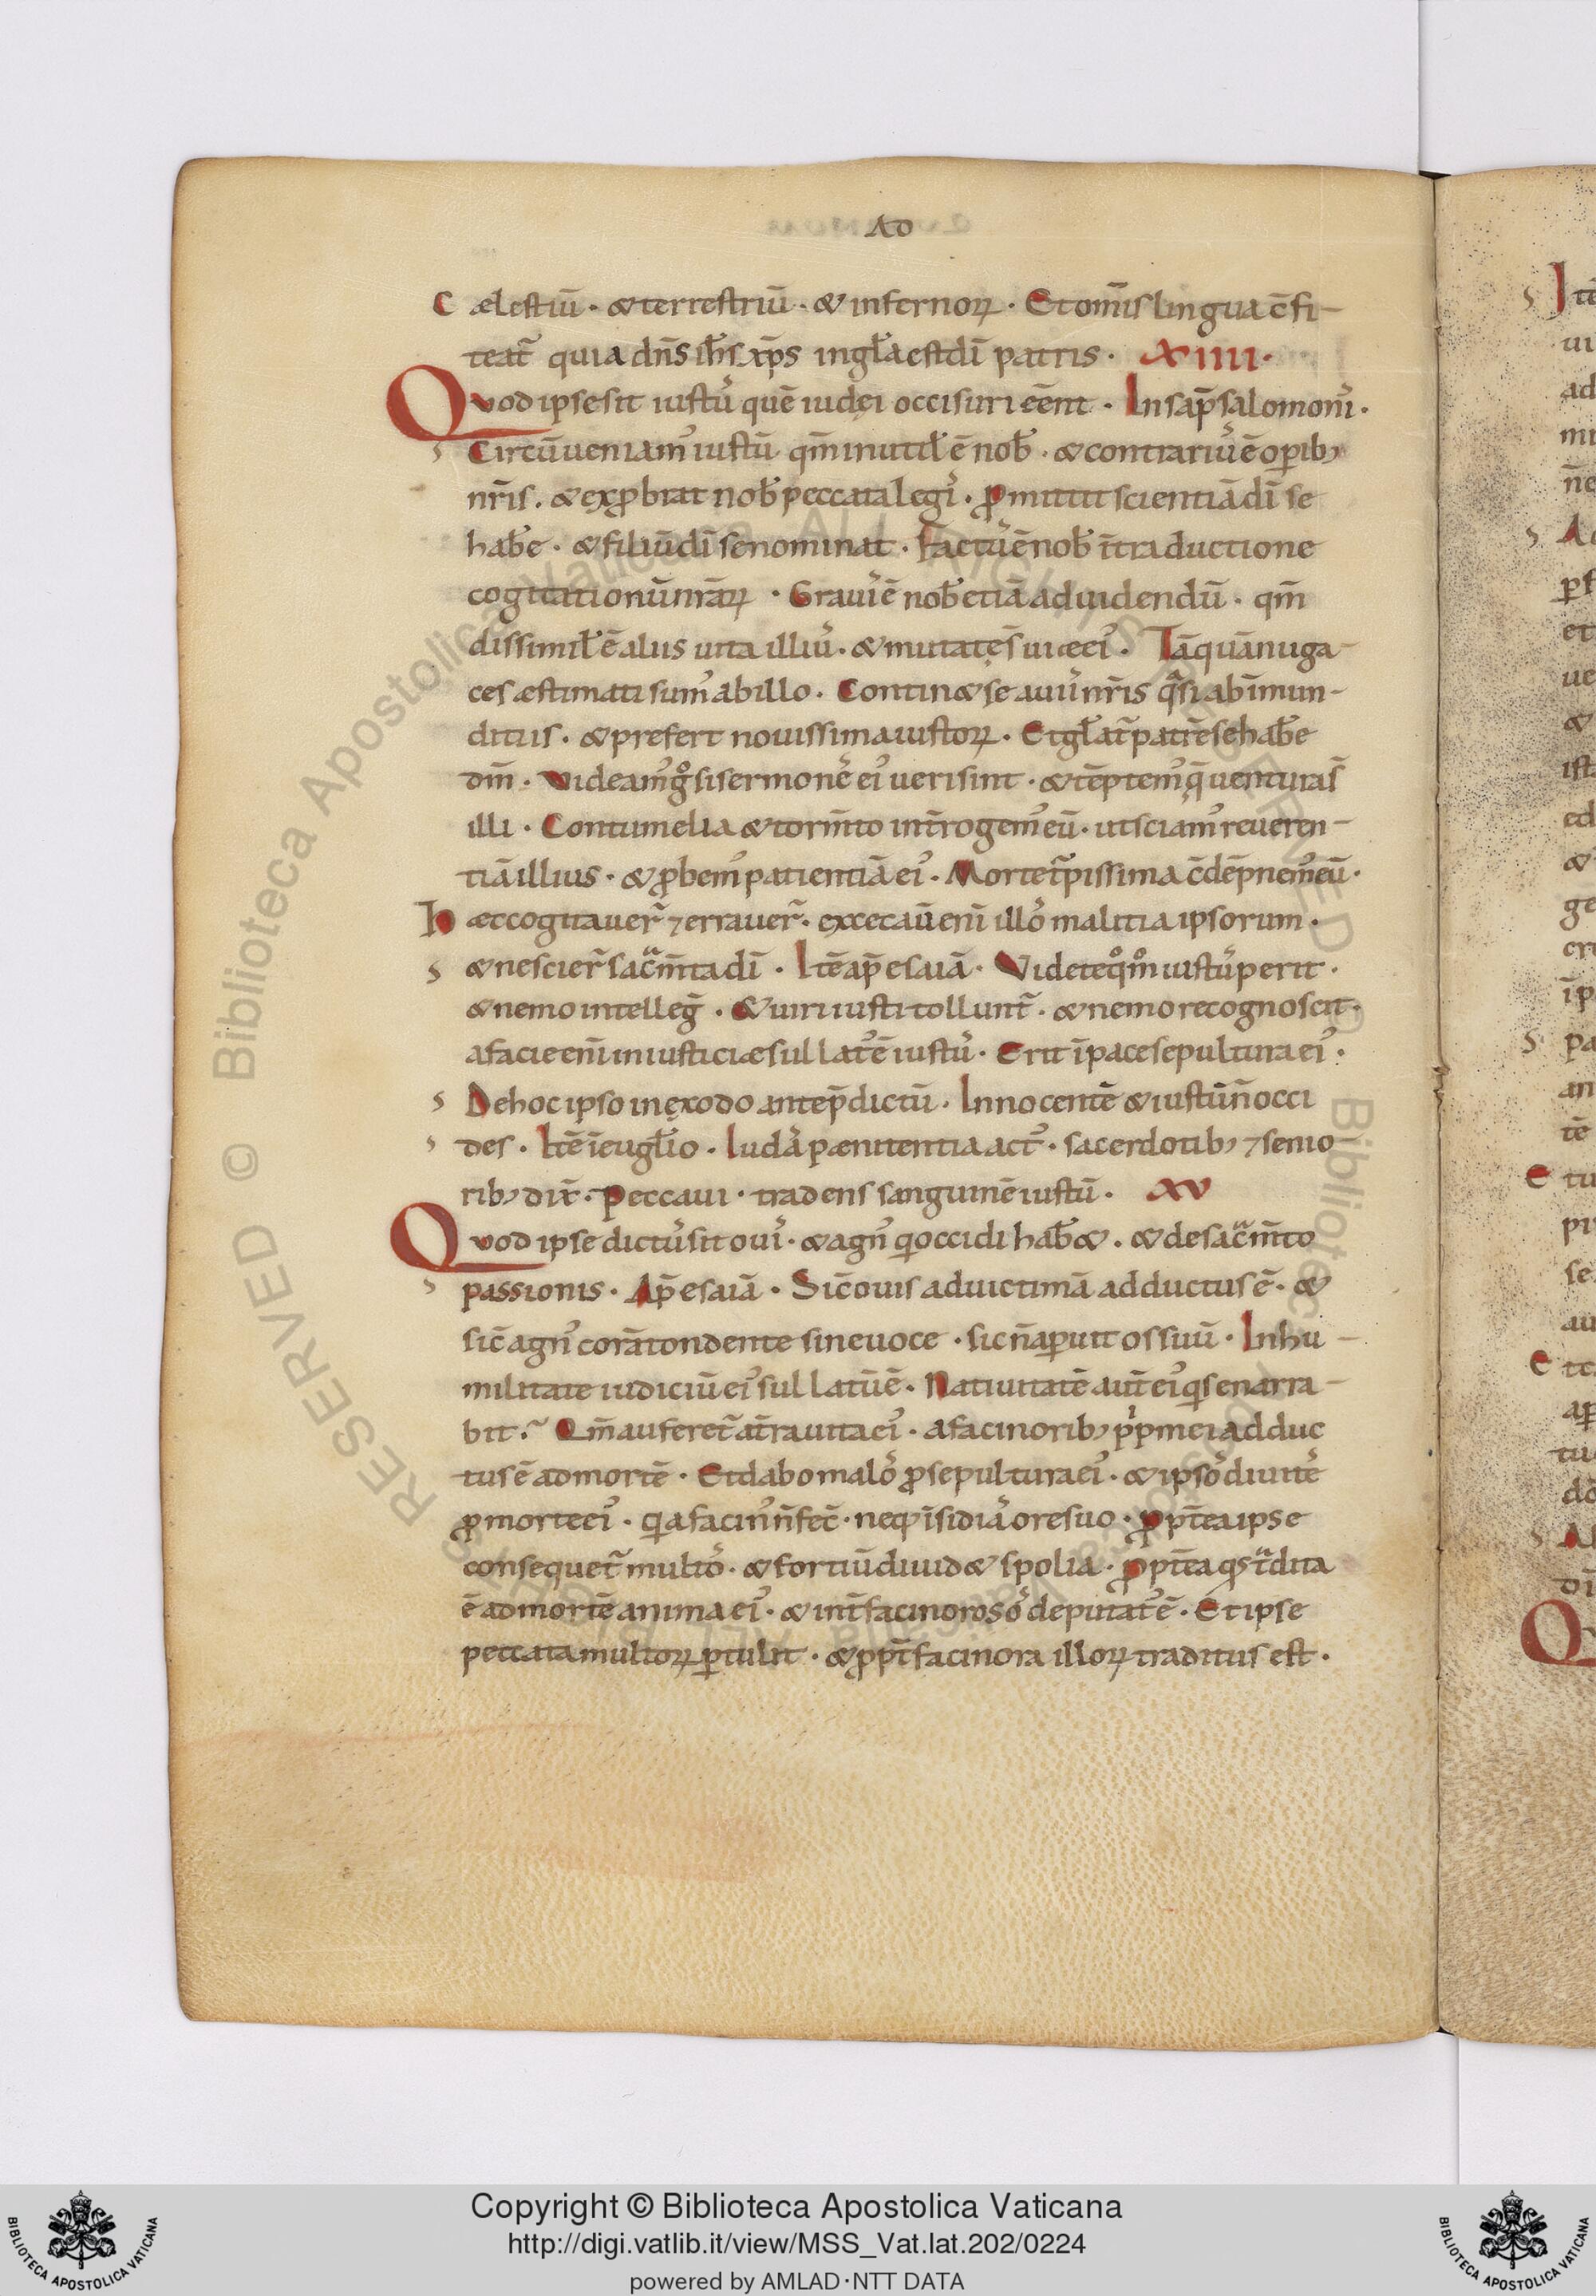 AD
Cælestiū · & terrestriū · & infernoꝝ · Et om̄is lingua c̄fi-
teat̄ quia dn̄s ih̄s xp̄s in gl̄a est dī patris · XIIII·
Quod ipse sit iustu᾽ quē iudęi occisuri eēnt · In sap̄ salomoni᾽·
Circūueniam᾽ iustū qm̄ inutil᾽ ē nob̄ · & contrariu᾽ ē opib;
nr̄is · & exꝓbrat nob̄ peccata legi᾽ · ꝓmittit scientiā dī se
hab̄e · & filiū dī se nominat · Factu᾽ ē nob̄ ī traductione
cogitationū nr̄aꝝ · Graui᾽ ē nob̄ etiā ad uidendū · qm̄
dissimil᾽ ē aliis uita illiu᾽ · & mutatę s̄ uiæ ei᾽ · Tāquā nuga-
ces æstimati sum᾽ ab illo · Contin& se a uiis nr̄is q̄si ab īmun-
ditiis · & prefert nouissima iustoꝝ · Et gl̄at̄ patrē se hab̄e
dm̄ · Videam᾽ g̊ si sermone᾽ ei᾽ ueri sint · & tēptem᾽ q̄ uentura s̄
illi · Contumelia & torm̄to int̄rogem᾽ eū · ut sciam᾽ reueren-
tiā illius · & ꝓbem᾽ patientiā ei᾽ · Morte t̄pissima c̄dēpnem᾽ eū·
Hæc cogitauer̄ ⁊ errauer̄ · excecaū eni᾽ illo᾽ malitia ipsorum ·
& nescier̄ sac̄m̄ta dī · Itē ap̄ esaiā · Videte qm̊ iustu᾽ perit ·
& nemo intelleḡ · & uiri iusti tollunt̄ · & nemo recognoscit·
a facie eni᾽ iniusticiæ sullat᾽ ē iustu᾽ · Erit ī pace sepultura ei᾽ ·
De hoc ipso in exodo ante p̄dictū · Innocentē & iustū n̄ occi
des · Itē ī eugl̄io · Iuda᾽ pænitentia act᾽ · sacerdotib; ⁊ senio-
rib; dix̄ · Peccaui · tradens sanguinē iustū · XV
Quod ipse dictu᾽ sit oui᾽ · & agn᾽ q̇ occidi hab̄& · & de sac̄m̄to
passionis · Ap̄ esaiā · Sic̄ ouis ad uictimā adductus ē · &
sic̄ agn᾽ corā tondente sine uoce · sic n̄ aꝑuit os suū · In hu-
militate iudiciū ei᾽ sullatū ē · Natiuitatē aut̄ ei᾽ q̇s enarra-
bit? Qm̄ auferet̄ a t̄ra uita ei᾽ · a facinorib; pp̄li mei adduc
tus ē ad mortē · Et dabo malo᾽ ꝓ sepultura ei᾽ · & ipso᾽ diuite᾽
ꝓ morte ei᾽ · q̇a facin᾽ n̄ fec̄ · neq; īsidia᾽ ore suo · ꝓpt̄ea ipse
consequet̄ multo᾽ · & fortiū diuid& spolia · ꝓpt̄ea q̇s t̄dita
ē ad mortē anima ei᾽ · & int̄ facinoroso᾽ deputat᾽ ē · Et ipse
peccata multoꝝ ꝑtulit · & ꝓpt̄ facinora illoꝝ traditus est ·
Copyright © Biblioteca Apostolica Vaticana
http://digi.vatlib.it/view/MSS_Vat.lat.202/0224
powered by AMLAD·NTT DATA